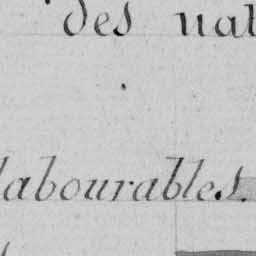 des nat
labourables.